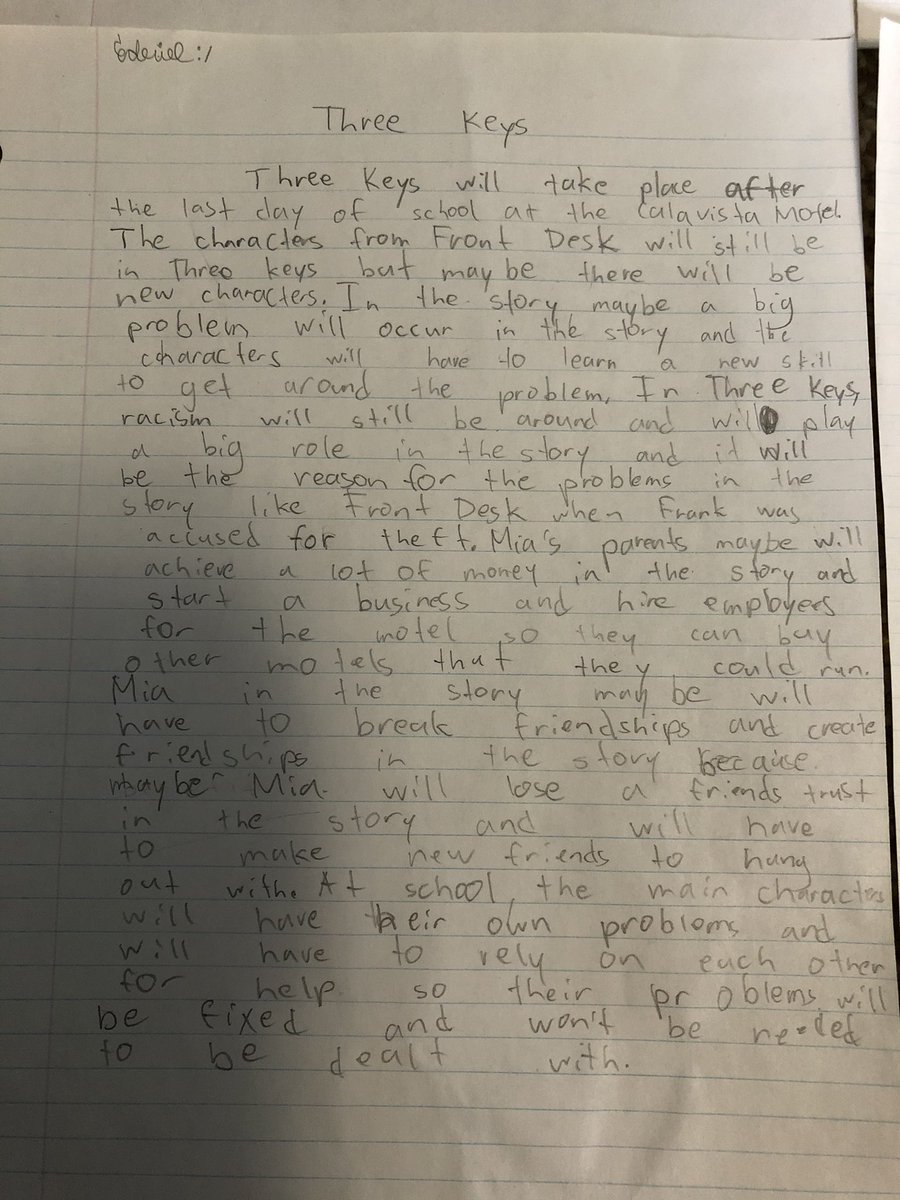 Three Keys
Three Keys will take place after
the last day of school at the Calavista Motel.
The characters from Front Desk will still be
in Three keys but maybe there will be
new characters. In the story maybe a big
problem will occur in the story and the
characters will have to learn a new skill
to get around the problem. In Three Keys,
racism will still be around and will play
a big role in the story and it will
be the reason for the problems in the
story like Front Desk when Frank was
accused for theft. Mia's parents maybe will
achieve a lot of money in the story and
start a business and hire employers
for the motel so they can buy
other motels that they could run.
Mia in the story maybe will
have to break friendships and create
friendships in the story because
maybe Mia will lose a friends trust
in the story and will have
to make new friends to hang
out with. At school, the main characters
will have their own problems and
will have to rely on each other
for help so their problems will
be fixed and won't be needed
to be dealt with.